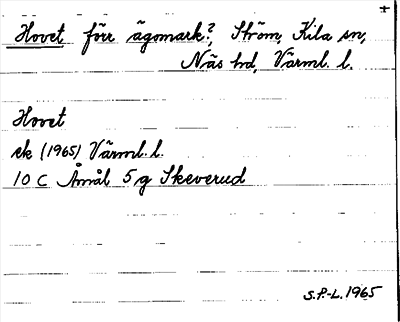 +
Hovet förr ägomark?, Ström, Kila sn,
Näs hd, Värml. l.
Hovet
ek (1965) Värml. l.
10 C Åmål 5 g Skeverud
S.P.-L. 1965